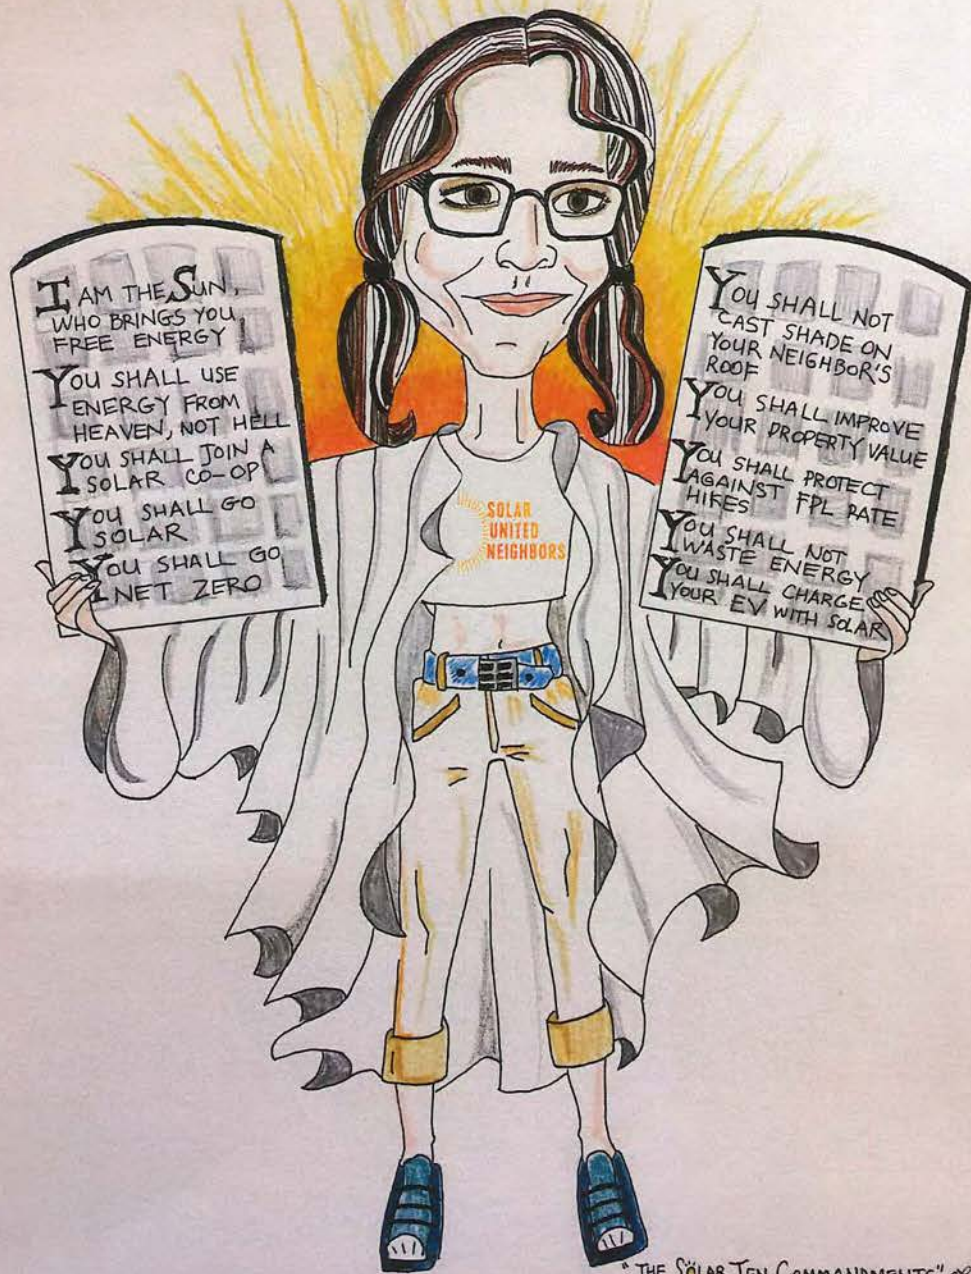 I AM THE SUN,
WHO BRINGS YOU
FREE ENERGY
YOU SHALL USE
ENERGY FROM
HEAVEN, NOT HELL
YOU SHALL JOIN A
SOLAR CO-OP
YOU SHALL GO
SOLAR
YOU SHALL GO
NET ZERO
YOU SHALL NOT
CAST SHADE ON
YOUR NEIGHBOR'S
ROOF
YOU SHALL IMPROVE
YOUR PROPERTY VALUE
YOU SHALL PROTECT
AGAINST FPL RATE
HIKES
YOU SHALL NOT
WASTE ENERGY
YOU SHALL CHARGE
YOUR EV WITH SOLAR
SOLAR
UNITED
NEIGHBORS
"THE SOLAR TEN COMMANDMENTS"